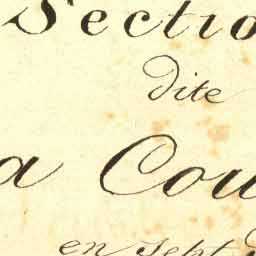 Sectio
dite
a Cou
en Sept